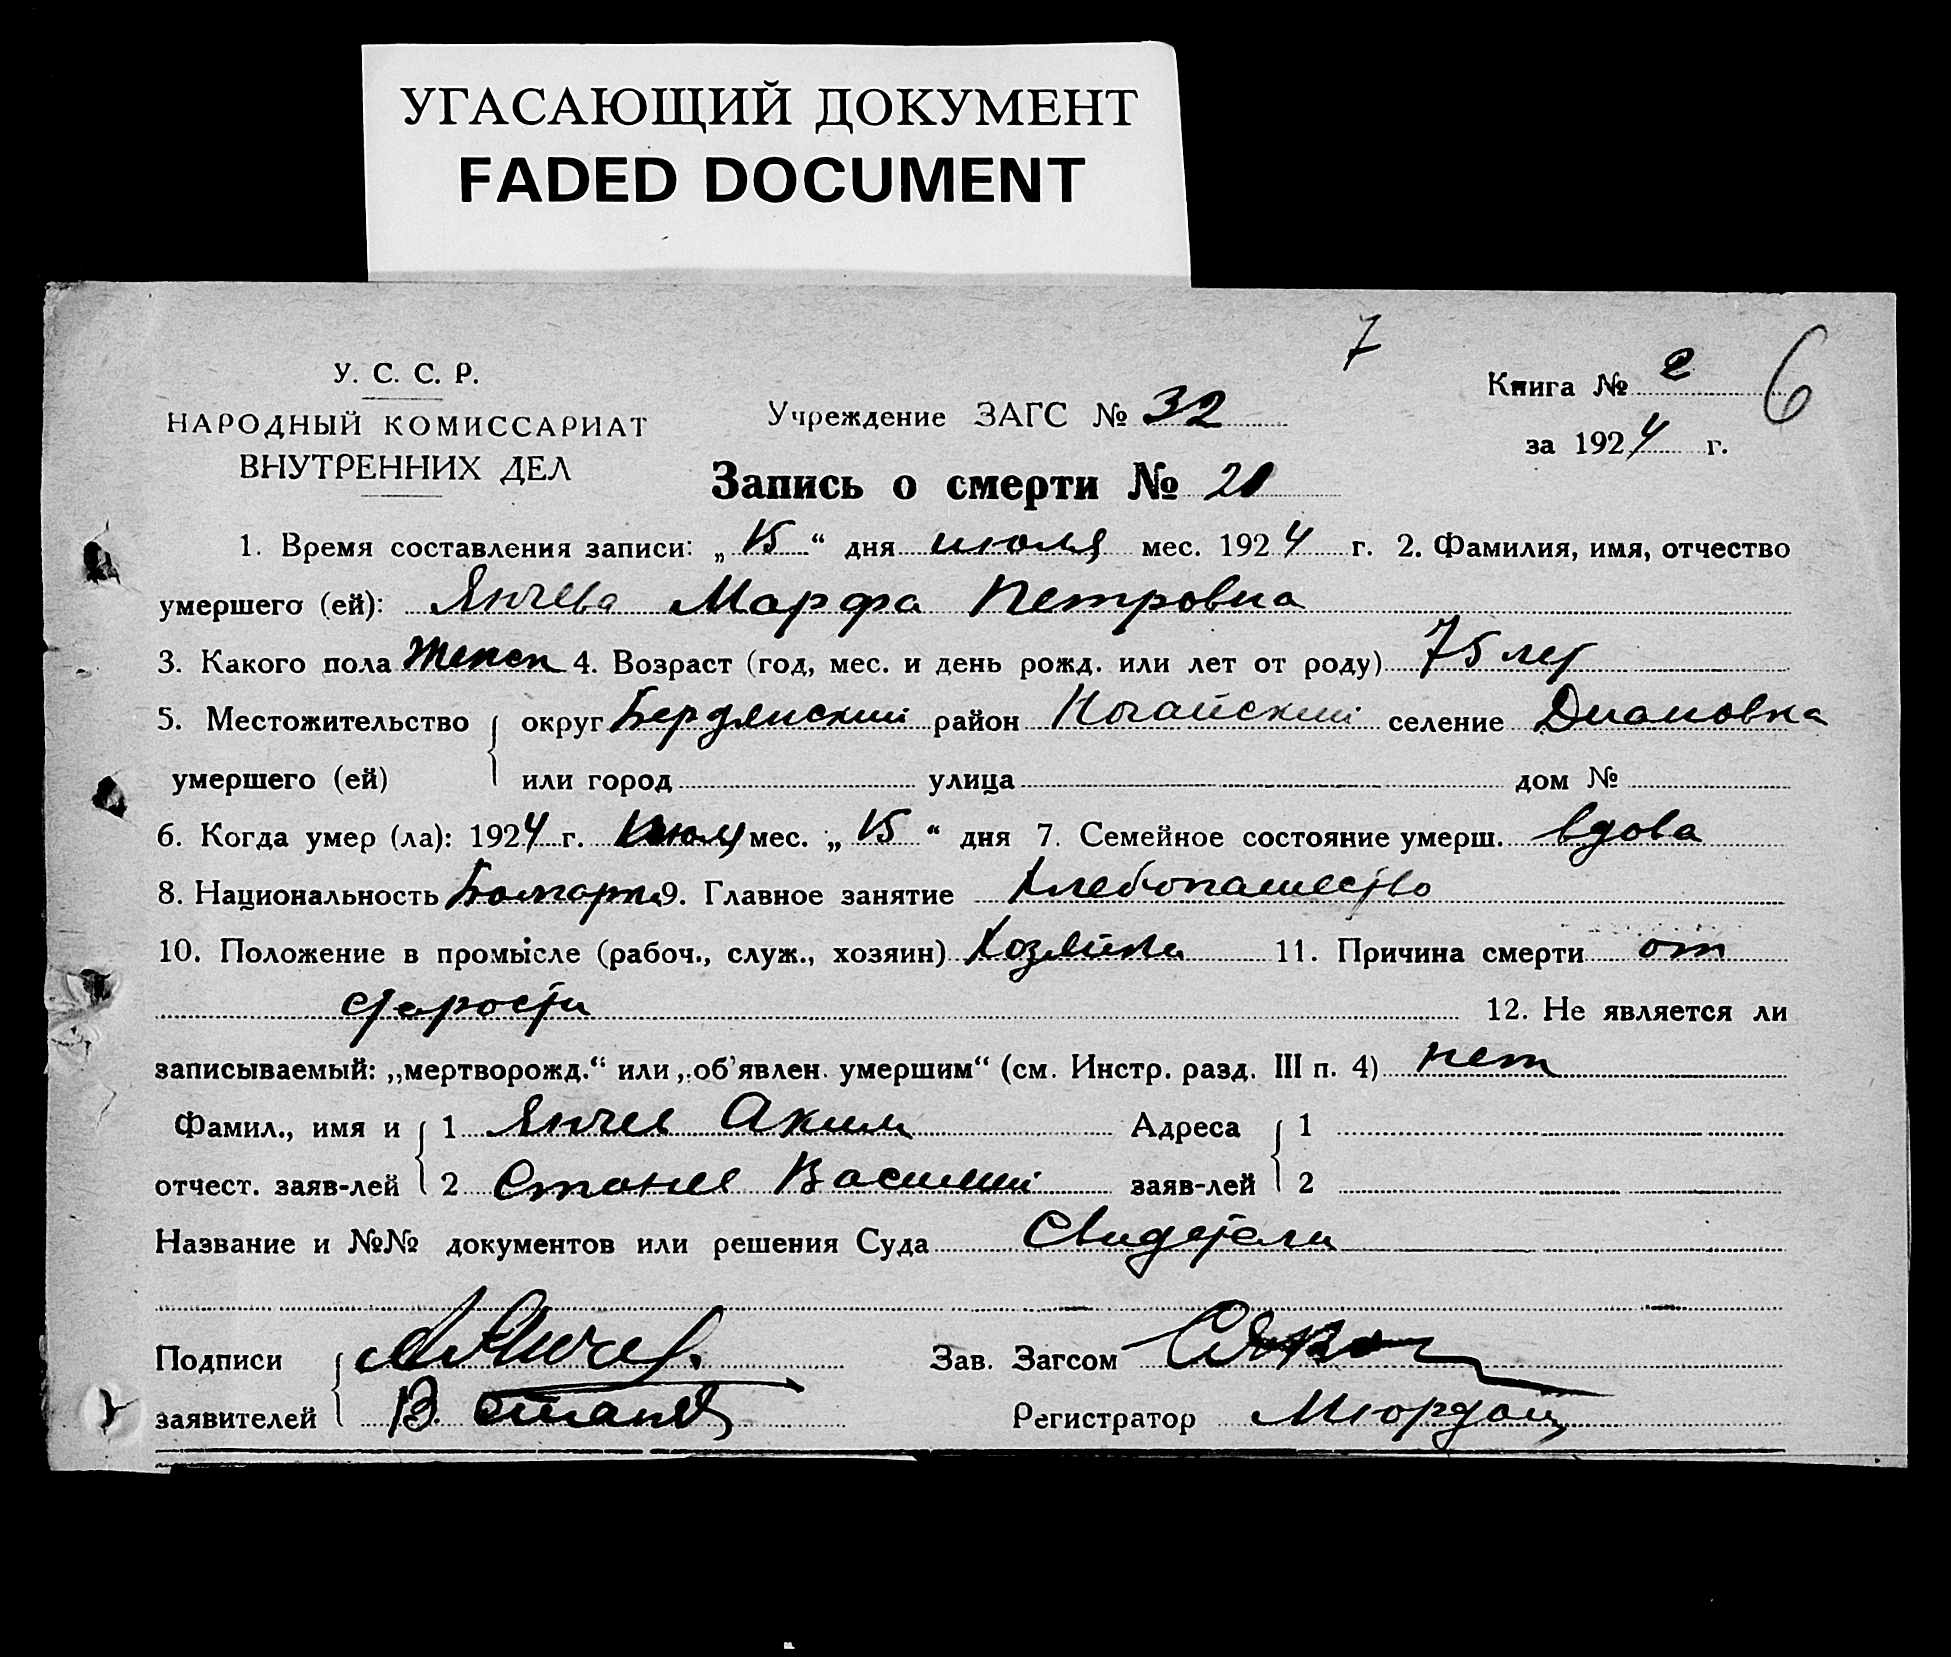 УГАСАЮЩИЙ ДОКУМЕНТ
FADED DOCUMENT
7
6
У. С. С. Р.
НАРОДНЫЙ КОМИССАРИАТ
ВНУТРЕННИХ ДЕЛ
Учреждение ЗАГС № 32
Книга № 2
за 1924 г.
Запись о смерти № 21
1. Время составления записи: „ 15 “ дня июля мес. 1924 г. 2. Фамилия, имя, отчество
умершего (ей): Янчева Марфа Петровна
3. Какого пола женск 4. Возраст (год, мес. и день рожд. или лет от роду) 75 лет
5. Местожительство { округ Бердянский район Ногайский селение Диановка
умершего (ей) или город улица дом №
6. Когда умер (ла): 1924 г. июля мес. „ 15 “ дня 7. Семейное состояние умерш. вдова
8. Национальность Болгарка 9. Главное занятие Хлебопашество
10. Положение в промысле (рабоч., служ., хозяин) Хозяйка 11. Причина смерти от
старости 12. Не является ли
записываемый: „мертворожд.“ или „об’явлен. умершим“ (см. Инстр. разд. III п. 4) нет
Фамил., имя и { 1 Янчев Аким Адреса { 1
отчест. заяв-лей 2 Станев Василий заяв-лей 2
Название и №№ документов или решения Суда Свидетели
Подписи { А Янчев. Зав. Загсом
заявителей В. Станев Регистратор